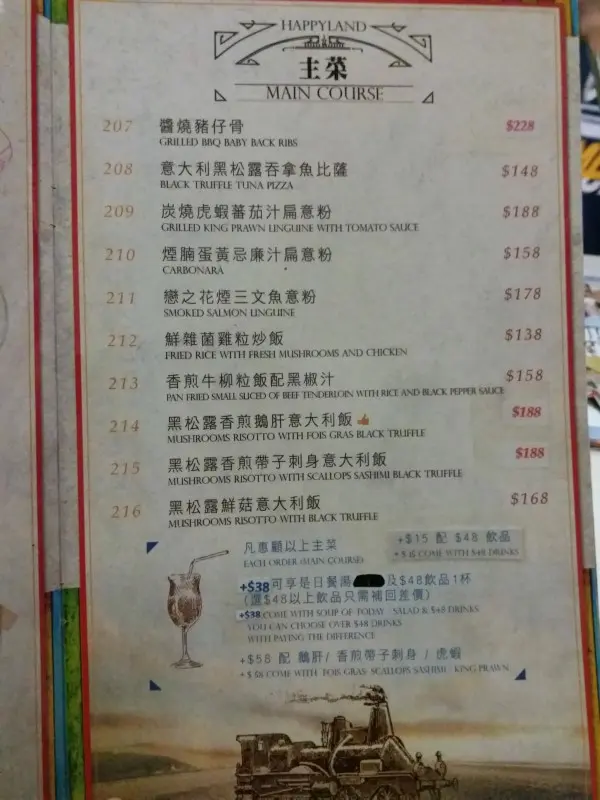 HAPPYLAND
主菜
MAIN COURSE
207 醬燒豬仔骨 $228
GRILLED BBQ BABY BACK RIBS
208 意大利黑松露吞拿魚比薩 $148
BLACK TRUFFLE TUNA PIZZA
209 炭燒虎蝦蕃茄汁扁意粉 $188
GRILLED KING PRAWN LINGUINE WITH TOMATO SAUCE
210 煙腩蛋黃忌廉汁扁意粉 $158
CARBONARA
211 戀之花煙三文魚意粉 $178
SMOKED SALMON LINGUINE
212 鮮雜菌雞粒炒飯 $138
FRIED RICE WITH FRESH MUSHROOMS AND CHICKEN
213 香煎牛柳粒飯配黑椒汁 $158
PAN FRIED SMALL SLICED OF BEEF TENDERLOIN WITH RICE AND BLACK PEPPER SAUCE
214 黑松露香煎鵝肝意大利飯 $188
MUSHROOMS RISOTTO WITH FOIS GRAS BLACK TRUFFLE
215 黑松露香煎帶子刺身意大利飯 $188
MUSHROOMS RISOTTO WITH SCALLOPS SASHIMI BLACK TRUFFLE
216 黑松露鮮菇意大利飯 $168
MUSHROOMS RISOTTO WITH BLACK TRUFFLE
凡惠顧以上主菜 +$15 配 $48 飲品
EACH ORDER (MAIN COURSE) + $ 15 COME WITH $48 DRINKS
+$38可享是日餐湯 及$48飲品1杯
(選$48以上飲品只需補回差價)
+$38 COME WITH SOUP OF TODAY SALAD & $48 DRINKS
YOU CAN CHOOSE OVER $48 DRINKS
WITH PAYING THE DIFFERENCE
+$58 配 鵝肝/ 香煎帶子刺身 / 虎蝦
+ $ 58 COME WITH FOIS GRAS SCALLOPS SASHIMI KING PRAWN